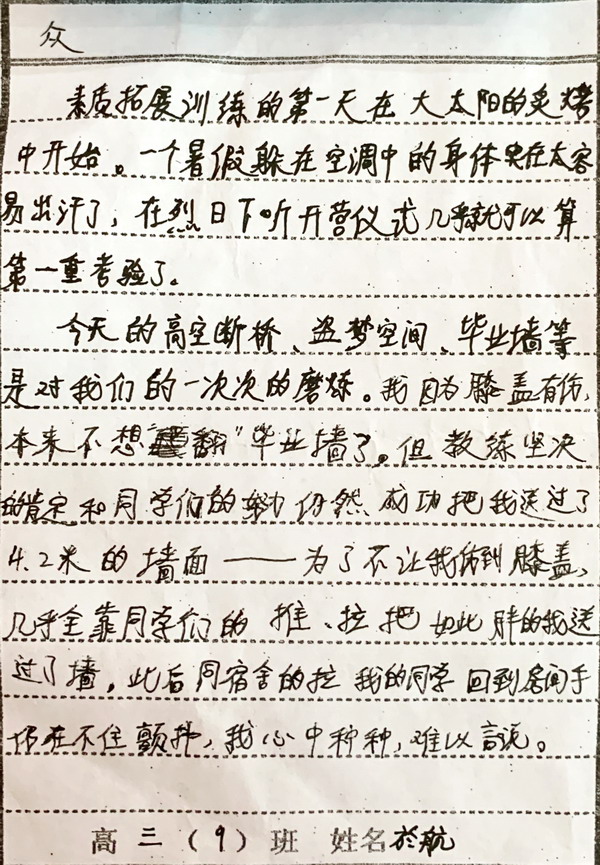 众
素质拓展训练的第一天在大太阳的炙烤
中开始。一个暑假躲在空调中的身体实在太容
易出汗了,在烈日下听开营仪式几乎就可以算
第一重考验了。
今天的高空断桥、盗梦空间、毕业墙等
是对我们的一次次的磨炼。我因为膝盖有伤,
本来不想“翻”毕业墙了。但教练坚决
的肯定和同学们的努力仍然成功把我送过了
4.2米的墙面——为了不让我伤到膝盖,
几乎全靠同学们的推、拉把如此胖的我送
过了墙,此后同宿舍的拉我的同学回到房间手
仍在不住颤抖,我心中种种,难以言说。
高三(9)班 姓名於航